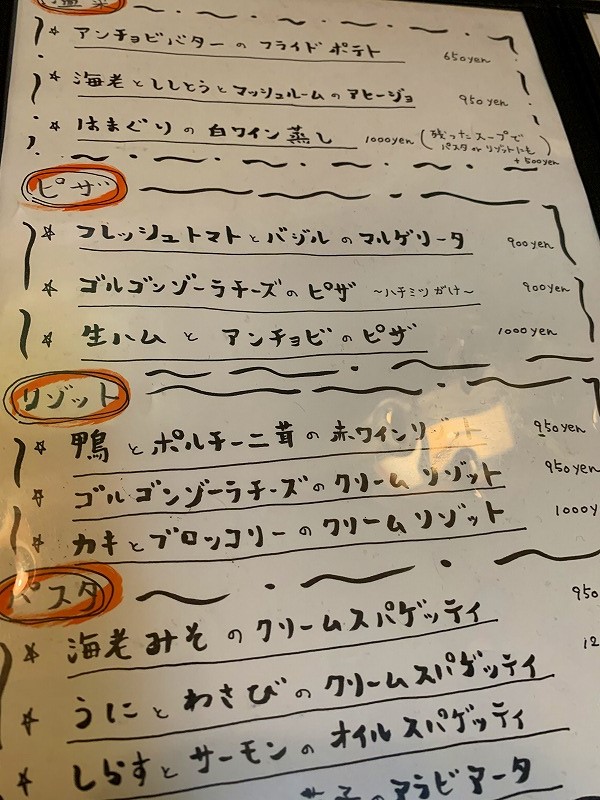 温菜
☆ アンチョビバターの フライドポテト 650yen
☆ 海老とししとうとマッシュルームのアヒージョ 950yen
☆ はまぐりの白ワイン蒸し 1000yen (残ったスープで
パスタ or リゾットにも)
+500yen
ピザ
☆ フレッシュトマトとバジルのマルゲリータ 900yen
☆ ゴルゴンゾーラチーズのピザ ～ハチミツがけ～ 900yen
☆ 生ハムと アンチョビのピザ 1000yen
リゾット
☆ 鴨とポルチーニ茸の赤ワインリゾット 950yen
☆ ゴルゴンゾーラチーズのクリームリゾット 950yen
☆ カキとブロッコリーのクリームリゾット 1000y
パスタ
☆ 海老みそのクリームスパゲッティ 950
☆ うにとわさびのクリームスパゲッティ 12
☆ しらすとサーモンのオイルスパゲッティ
のアラビアータ